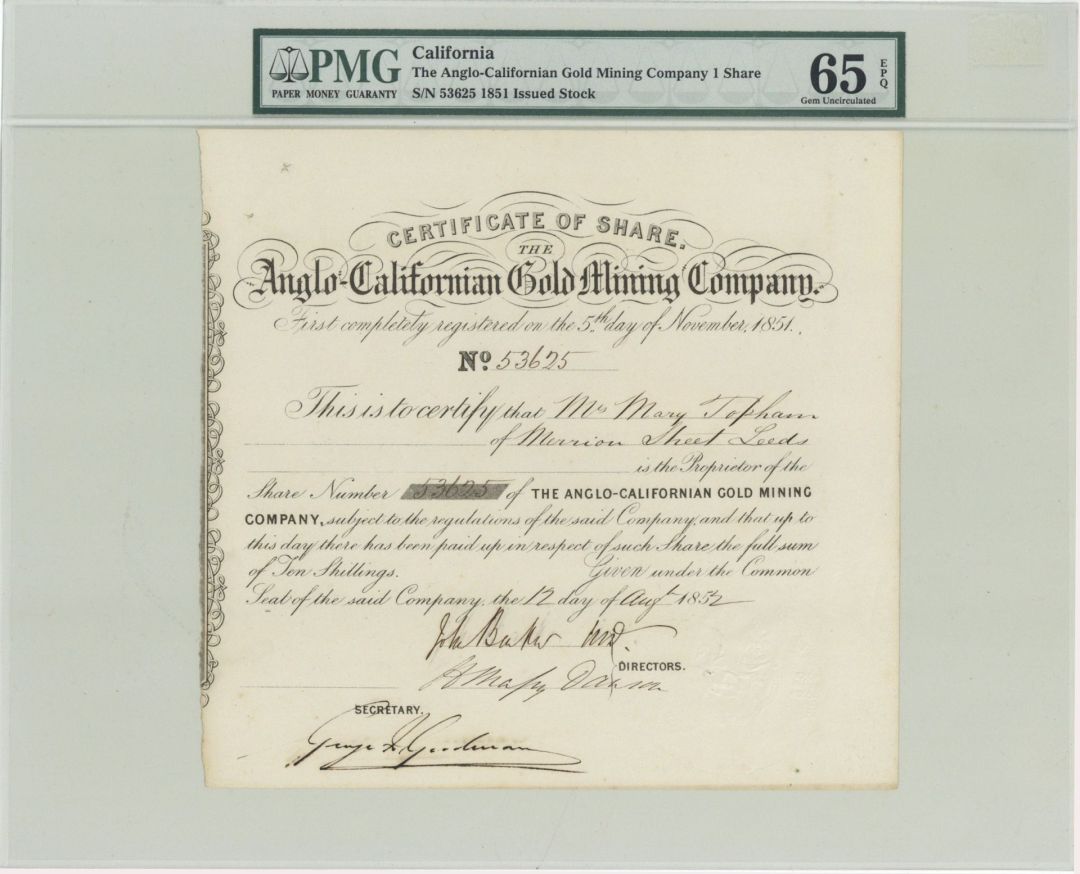 PMG
PAPER MONEY GUARANTY
California
The Anglo-Californian Gold Mining Company 1 Share
S/N 53625 1851 Issued Stock
65 EPQ
Gem Uncirculated
CERTIFICATE OF SHARE.
THE
Anglo-Californian Gold Mining Company.
First completely registered on the 5th day of November, 1851.
No 53625
This is to certify that Mrs Mary Topham
of Merrion Street Leeds
is the Proprietor of the
Share Number 53625 of THE ANGLO-CALIFORNIAN GOLD MINING
COMPANY, subject to the regulations of the said Company, and that up to
this day there has been paid up in respect of such Share, the full sum
of Ten Shillings. Given under the Common
Seal of the said Company, the 12 day of Augt 1852
John
DIRECTORS.
H Dawson
SECRETARY.
George Goodman